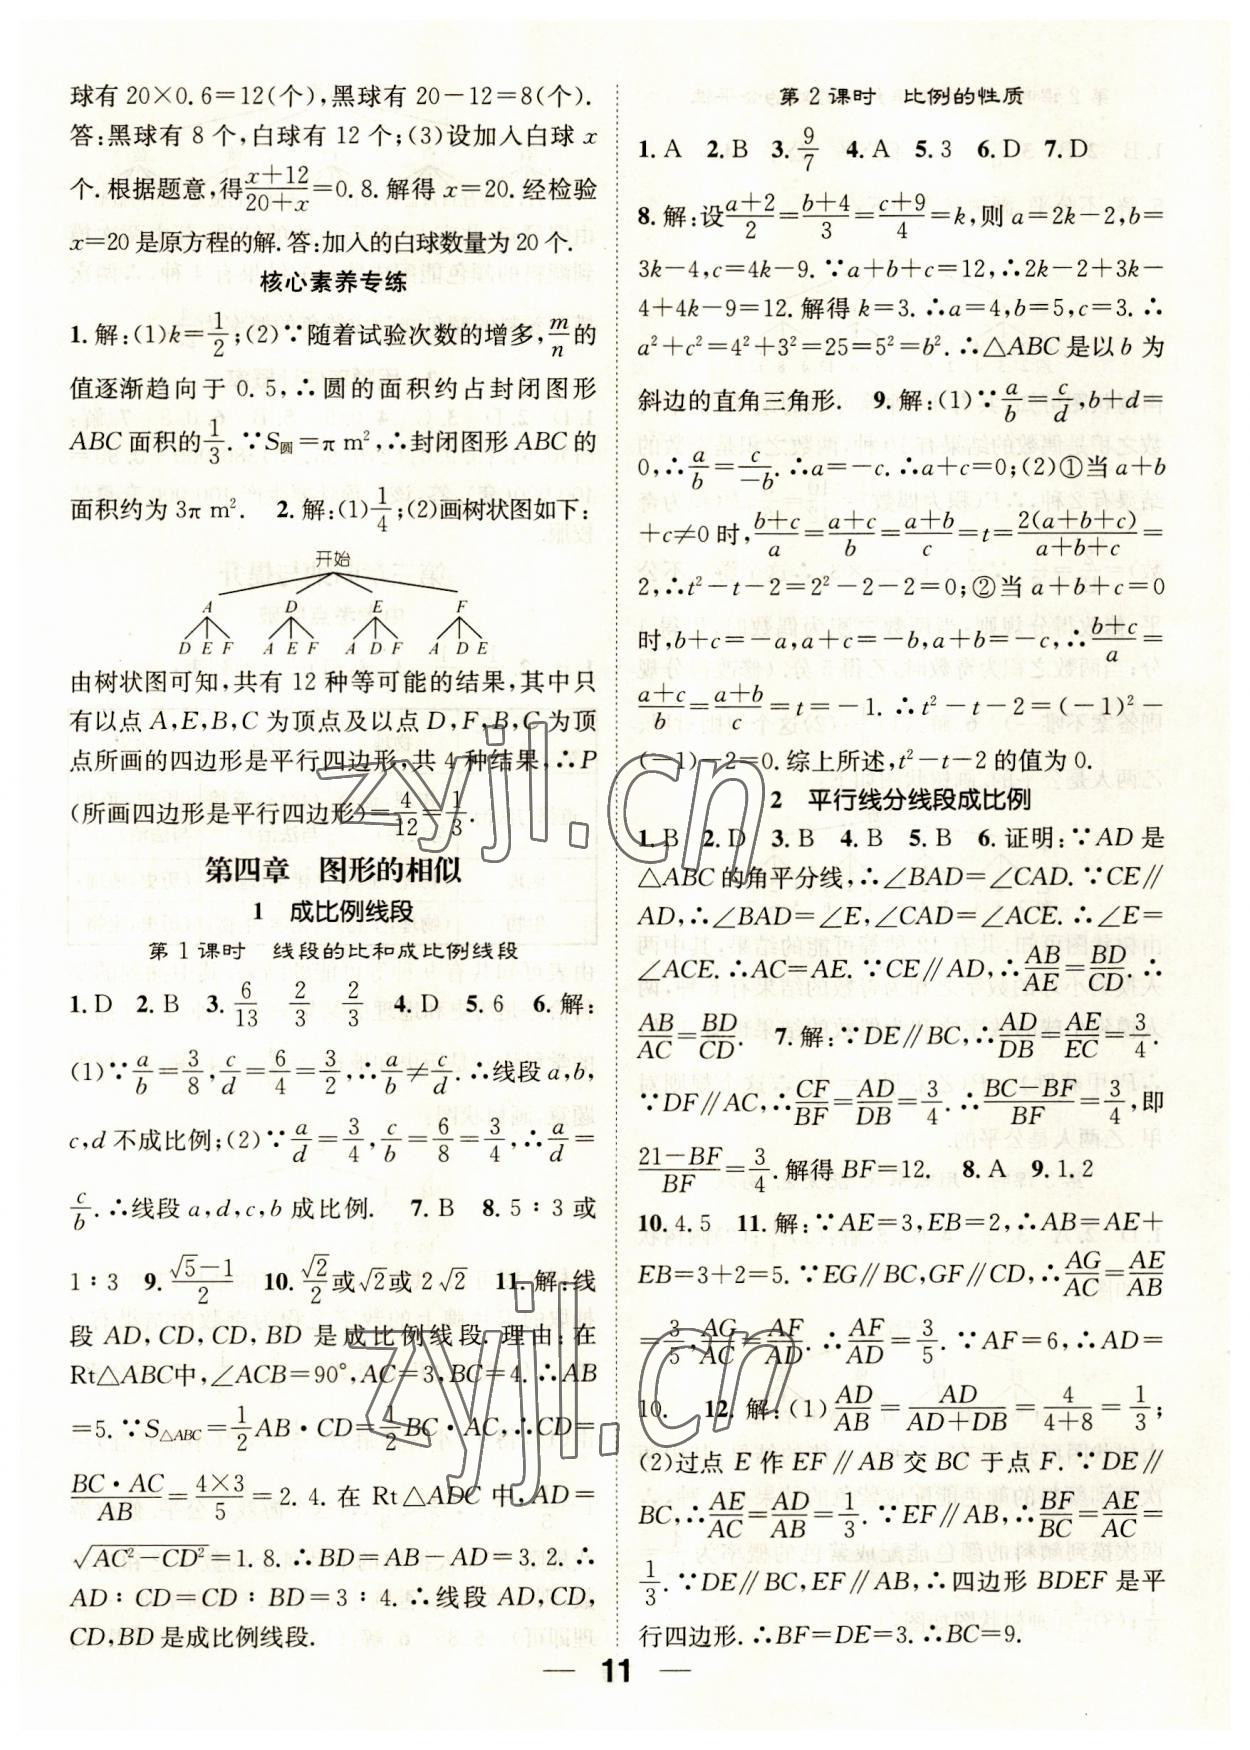 球有 20×0.6=12(个),黑球有 20-12=8(个).
答:黑球有 8 个,白球有 12 个;(3)设加入白球 x
个.根据题意,得\frac{x+12}{20+x}=0.8.解得 x=20.经检验
x=20 是原方程的解.答:加入的白球数量为 20 个.
核心素养专练
1.解:(1)k=\frac{1}{2};(2)∵随着试验次数的增多,\frac{m}{n}的
值逐渐趋向于 0.5,∴圆的面积约占封闭图形
ABC 面积的\frac{1}{3}.∵S圆=π m²,∴封闭图形 ABC 的
面积约为 3π m².  2.解:(1)\frac{1}{4};(2)画树状图如下:
开始
A D E F
D E F  A E F  A D F  A D E
由树状图可知,共有 12 种等可能的结果,其中只
有以点 A,E,B,C 为顶点及以点 D,F,B,C 为顶
点所画的四边形是平行四边形,共 4 种结果,∴P
(所画四边形是平行四边形)=\frac{4}{12}=\frac{1}{3}.
第四章  图形的相似
1  成比例线段
第 1 课时  线段的比和成比例线段
1.D  2.B  3.\frac{6}{13}  \frac{2}{3}  \frac{2}{3}  4.D  5.6  6.解:
(1)∵\frac{a}{b}=\frac{3}{8},\frac{c}{d}=\frac{6}{4}=\frac{3}{2},∴\frac{a}{b}≠\frac{c}{d}.∴线段 a,b,
c,d 不成比例;(2)∵\frac{a}{d}=\frac{3}{4},\frac{c}{b}=\frac{6}{8}=\frac{3}{4},∴\frac{a}{d}=
\frac{c}{b}.∴线段 a,d,c,b 成比例.  7.B  8.5∶3 或
1∶3  9.\frac{√5-1}{2}  10.\frac{√2}{2}或√2或 2√2  11.解:线
段 AD,CD,CD,BD 是成比例线段.理由:在
Rt△ABC中,∠ACB=90°,AC=3,BC=4.∴AB
=5.∵S△ABC=\frac{1}{2}AB·CD=\frac{1}{2}BC·AC,∴CD=
\frac{BC·AC}{AB}=\frac{4×3}{5}=2.4.在 Rt△ADC 中,AD=
√(AC²-CD²)=1.8.∴BD=AB-AD=3.2.∴
AD∶CD=CD∶BD=3∶4.∴线段 AD,CD,
CD,BD 是成比例线段.
第 2 课时  比例的性质
1.A  2.B  3.\frac{9}{7}  4.A  5.3  6.D  7.D
8.解:设\frac{a+2}{2}=\frac{b+4}{3}=\frac{c+9}{4}=k,则 a=2k-2,b=
3k-4,c=4k-9.∵a+b+c=12,∴2k-2+3k-
4+4k-9=12.解得 k=3.∴a=4,b=5,c=3.∴
a²+c²=4²+3²=25=5²=b².∴△ABC 是以 b 为
斜边的直角三角形.  9.解:(1)∵\frac{a}{b}=\frac{c}{d},b+d=
0,∴\frac{a}{b}=\frac{c}{-b}.∴a=-c.∴a+c=0;(2)①当 a+b
+c≠0 时,\frac{b+c}{a}=\frac{a+c}{b}=\frac{a+b}{c}=t=\frac{2(a+b+c)}{a+b+c}=
2,∴t²-t-2=2²-2-2=0;②当 a+b+c=0
时,b+c=-a,a+c=-b,a+b=-c,∴\frac{b+c}{a}=
\frac{a+c}{b}=\frac{a+b}{c}=t=-1.∴t²-t-2=(-1)²-
(-1)-2=0.综上所述,t²-t-2 的值为 0.
2  平行线分线段成比例
1.B  2.D  3.B  4.B  5.B  6.证明:∵AD 是
△ABC 的角平分线,∴∠BAD=∠CAD.∵CE∥
AD,∴∠BAD=∠E,∠CAD=∠ACE.∴∠E=
∠ACE.∴AC=AE.∵CE∥AD,∴\frac{AB}{AE}=\frac{BD}{CD}.∴
\frac{AB}{AC}=\frac{BD}{CD}.  7.解:∵DE∥BC,∴\frac{AD}{DB}=\frac{AE}{EC}=\frac{3}{4}.
∵DF∥AC,∴\frac{CF}{BF}=\frac{AD}{DB}=\frac{3}{4}.∴\frac{BC-BF}{BF}=\frac{3}{4},即
\frac{21-BF}{BF}=\frac{3}{4}.解得 BF=12.  8.A  9.1.2
10.4.5  11.解:∵AE=3,EB=2,∴AB=AE+
EB=3+2=5.∵EG∥BC,GF∥CD,∴\frac{AG}{AC}=\frac{AE}{AB}
=\frac{3}{5},\frac{AG}{AC}=\frac{AF}{AD}.∴\frac{AF}{AD}=\frac{3}{5}.∵AF=6,∴AD=
10.  12.解:(1)\frac{AD}{AB}=\frac{AD}{AD+DB}=\frac{4}{4+8}=\frac{1}{3};
(2)过点 E 作 EF∥AB 交 BC 于点 F.∵DE∥
BC,∴\frac{AE}{AC}=\frac{AD}{AB}=\frac{1}{3}.∵EF∥AB,∴\frac{BF}{BC}=\frac{AE}{AC}=
\frac{1}{3}.∵DE∥BC,EF∥AB,∴四边形 BDEF 是平
行四边形.∴BF=DE=3.∴BC=9.
— 11 —
zyjl.cn
zyjl.cn